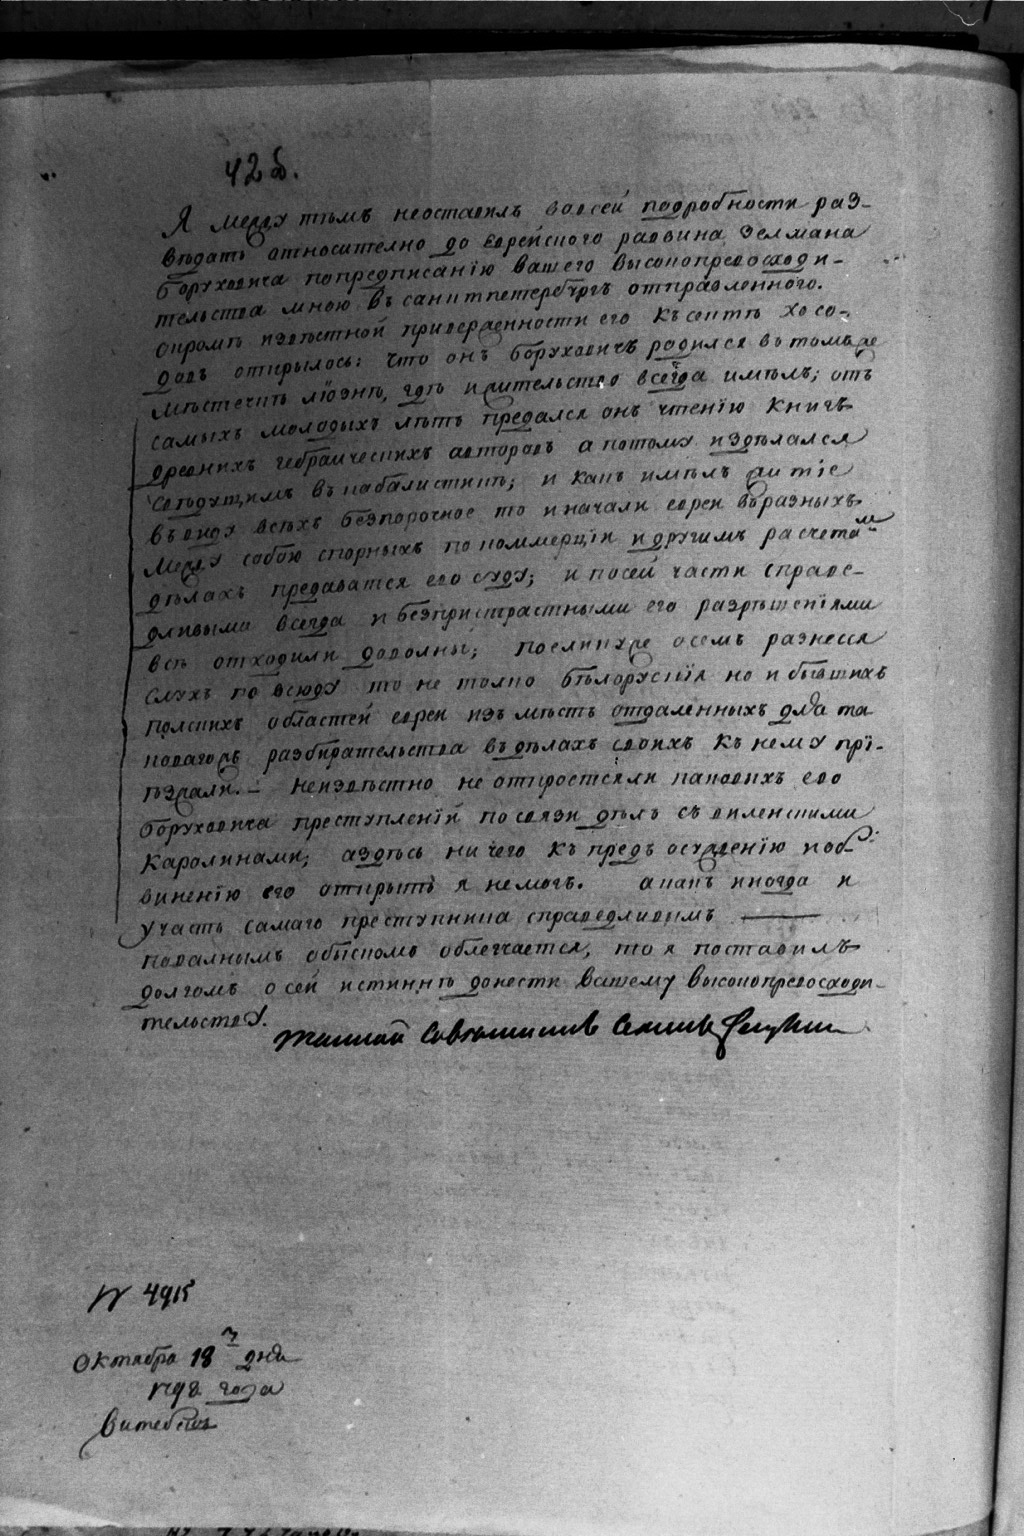 42 б.
Я между тѣмъ неоставилъ вовсей подробности раз-
вѣдать относително до еврейского раввина Зелмана
Боруховича попредписанію вашего высокопревосходи-
тельства мною въ санктпетербургъ отправленного.
окромѣ извѣстной приверженности его къ сектѣ хосо-
довъ открылось: что онъ Боруховичъ родился въ томъ же
мѣстечкѣ Ліознѣ, гдѣ и жительство всегда имѣлъ; отъ
самыхъ молодыхъ лѣтъ предался онъ чтенію книгъ
древнихъ гебраическихъ авторовъ а потому издѣлался
свѣдущимъ въ кабалистикѣ; и какъ имѣлъ житіе
въ виду всѣхъ безпорочное то и начали евреи въразныхъ
между собою спорныхъ по коммерціи и другимъ расчетамъ
дѣлахъ предаватся его суду; и посей части справе-
дливыми всегда и безпристрастными его разрѣшеніями
всѣ отходили доволны; поелику же осемъ разнесся
слухъ повсюду то не толко бѣлорускія но и бывшихъ
полскихъ областей евреи изъ мѣстъ отдаленныхъ для та
коваго разбирательства въ дѣлахъ своихъ къ нему прі-
ѣзжали. — Неизвѣстно не откростсяли каковихъ его
Боруховича преступленій посвязи дѣлъ съ виленскими
Каролинами; аздѣсь ничего къ предъ осужденію поб-
виненію его открыть я немогъ. а какъ иногда и
участь самаго преступника справедливимъ
повалнымъ обыскомъ облегчается, то я поставилъ
долгомъ осей истиннѣ донести вашему высокопревосходи-
тельству.
Тайный Совѣтникъ
N 4915
Октября 18 дня
1798 года
Витебскъ